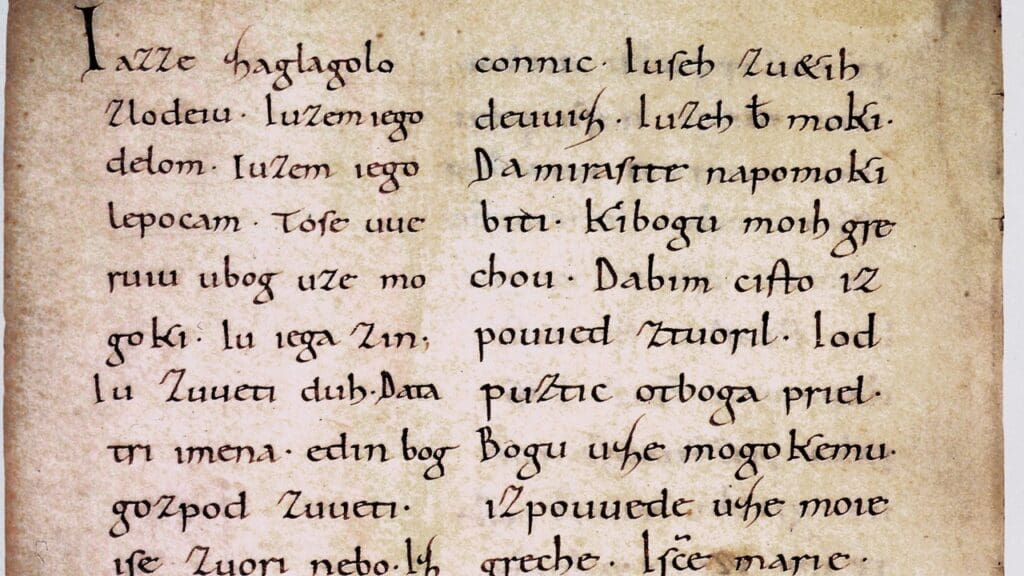 Iazze zaglagolo
zlodeiu. Iuzem iego
delom. Iuzem iego
lepocam. Tose uue
ruiu ubog uze mo
goki. Iu iega zin;
Iu zuueti duh. Data
tri imena. edin bog
gozpod zuueti.
ise zuori nebo. Iz
connic. Iuseh zu&ih
deuuiz. Iuzeh ƀ moki.
Da mirasite napomoki
biti. Kibogu moih gre
chou. Dabim cisto iz
pouued ztuoril. Iod
puztic otboga priel.
Bogu uze mogokemu.
izpouuede uze moie
greche. Isc̃e marie.